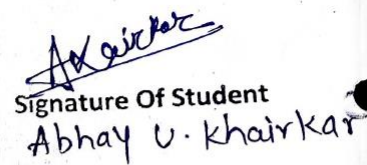 AKairkar
Signature Of Student
Abhay U. Khairkar